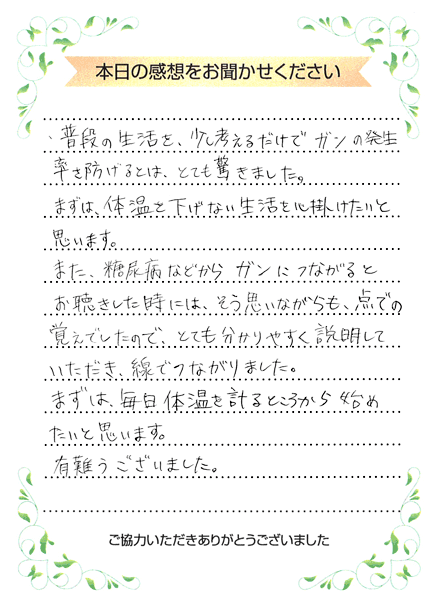 本日の感想をお聞かせください
・普段の生活を、少し考えるだけでガンの発生
率を防げるとは、とても驚きました。
まずは、体温を下げない生活を心掛けたいと
思います。
また、糖尿病などから ガンにつながると
お聴きした時には、そう思いながらも、点での
覚えでしたので、とても分かりやすく説明して
いただき、線でつながりました。
まずは、毎日体温を計るところから始め
たいと思います。
有難うございました。
ご協力いただきありがとうございました